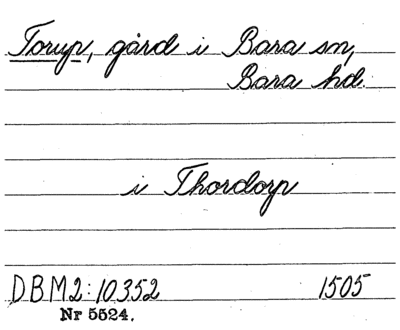 Torup, gård i Bara sn,
Bara hd.
i Thordorp
DBM2:10352 1505
Nr 5524.